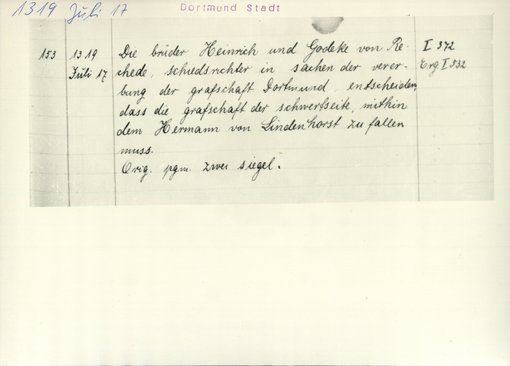 1319 Juli 17
Dortmund Stadt
153 1319 Die brüder Heinrich und Godeke von Re- I 372
Juli 17 chede, schiedsrichter in sachen der verer- Erg I 332
bung der grafschaft Dortmund, entscheiden,
dass die grafschaft der schwertseite, mithin
dem Hermann von Lindenhorst zu fallen
muss.
Orig. pgm. zwei siegel.